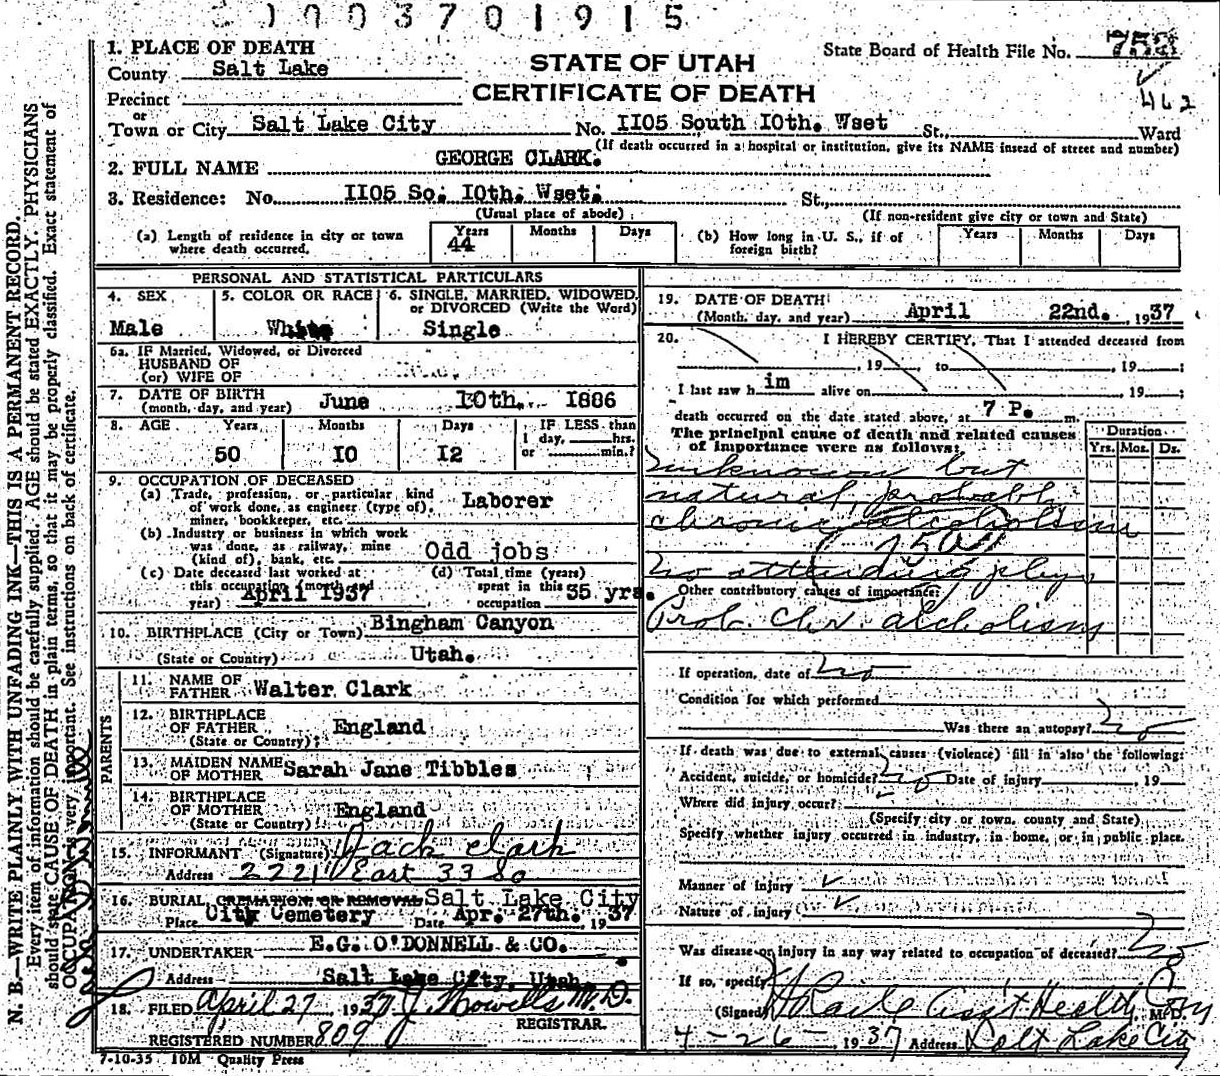 1003701915
1. PLACE OF DEATH
County Salt Lake
STATE OF UTAH
State Board of Health File No. 752
Precinct
CERTIFICATE OF DEATH
462
or
Town or City Salt Lake City No. II05 South I0th. Wset St., Ward
(If death occurred in a hospital or institution, give its NAME insead of street and number)
2. FULL NAME GEORGE CLARK.
3. Residence: No. II05 So. I0th. Wset. St.,
(Usual place of abode) (If non-resident give city or town and State)
(a) Length of residence in city or town where death occurred. Years 44 Months Days
(b) How long in U. S., if of foreign birth? Years Months Days
PERSONAL AND STATISTICAL PARTICULARS
4. SEX Male
5. COLOR OR RACE White
6. SINGLE, MARRIED, WIDOWED, or DIVORCED (Write the Word) Single
6a. IF Married, Widowed, or Divorced
HUSBAND OF
(or) WIFE OF
7. DATE OF BIRTH
(month, day, and year) June I0th. I886
8. AGE Years Months Days IF LESS than
1 day, hrs.
or min.?
50 I0 I2
9. OCCUPATION OF DECEASED
(a) Trade, profession, or particular kind
of work done, as engineer (type of),
miner, bookkeeper, etc. Laborer
(b) Industry or business in which work
was done, as railway, mine
(kind of), bank, etc. Odd jobs
(c) Date deceased last worked at
this occupation (month and
year) April I937
(d) Total time (years)
spent in this
occupation 35 yrs.
10. BIRTHPLACE (City or Town) Bingham Canyon
(State or Country) Utah.
PARENTS
11. NAME OF
FATHER Walter Clark
12. BIRTHPLACE
OF FATHER England
(State or Country)
13. MAIDEN NAME
OF MOTHER Sarah Jane Tibbles
14. BIRTHPLACE
OF MOTHER England
(State or Country)
15. INFORMANT (Signature) Jack Clark
Address 2221 East 33 So
16. BURIAL, CREMATION, OR REMOVAL Salt Lake City
Place City Cemetery Date Apr. 27th. 1937
17. UNDERTAKER E.G. O'DONNELL & CO.
Address Salt Lake City, Utah
18. FILED April 27, 1937 J. Howells M.D.
REGISTRAR.
REGISTERED NUMBER 809
7-10-35 10M Quality Press
19. DATE OF DEATH
(Month, day, and year) April 22nd. , 1937
20. I HEREBY CERTIFY, That I attended deceased from
, 19 to , 19 ;
I last saw h im alive on , 19 ;
death occurred on the date stated above, at 7 P. m.
The principal cause of death and related causes
of importance were as follows:
Duration
Yrs. Mos. Ds.
unknown but
natural, probably
chronic alcoholism
75a
No attending phys
Other contributory causes of importance:
Prob. Chr. alcholism
If operation, date of No
Condition for which performed
Was there an autopsy? No
If death was due to external causes (violence) fill in also the following:
Accident, suicide, or homicide? No Date of injury , 19
Where did injury occur?
(Specify city or town, county and State)
Specify whether injury occurred in industry, in home, or in public place.
Manner of injury
Nature of injury
Was disease or injury in any way related to occupation of deceased? No
If so, specify
(Signed) Asst Health Com M.D.
4-26-1937 Address Salt Lake City
N. B.—WRITE PLAINLY WITH UNFADING INK—THIS IS A PERMANENT RECORD.
Every item of information should be carefully supplied. AGE should be stated EXACTLY. PHYSICIANS
should state CAUSE OF DEATH in plain terms, so that it may be properly classified. Exact statement of
OCCUPATION is very important. See instructions on back of certificate.